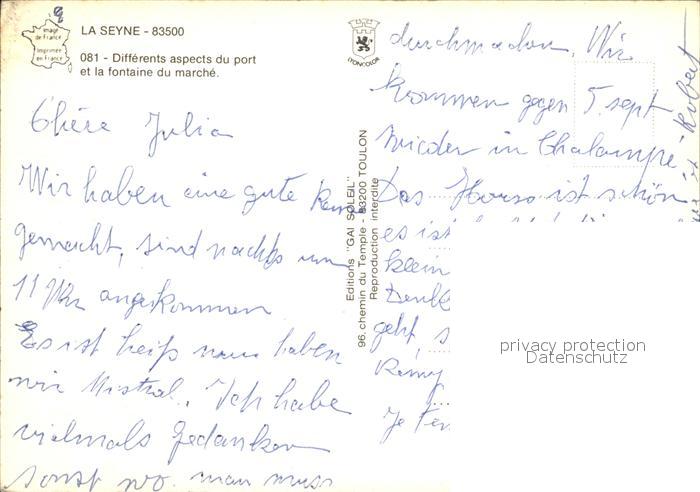 Image
de France
Imprimée
en France
LA SEYNE - 83500
081 - Différents aspects du port
et la fontaine du marché.
LYONCOLOR
Chère Julia
Wir haben eine gute
gemacht, sind nachts um
11 Uhr angekommen
Es ist heiß nun haben
wir Mistral. Ich habe
vielmals Gedanken
sonst wo. man muss
Editions "GAI SOLEIL"
96, chemin du Temple - 83200 TOULON
Reproduction interdite
durchmachen. Wir
kommen gegen 5. sept
wieder in Chalampé
Das Haus ist schön
es ist
klein
geht s
Rémy
Je t'em
Robert
privacy protection
Datenschutz